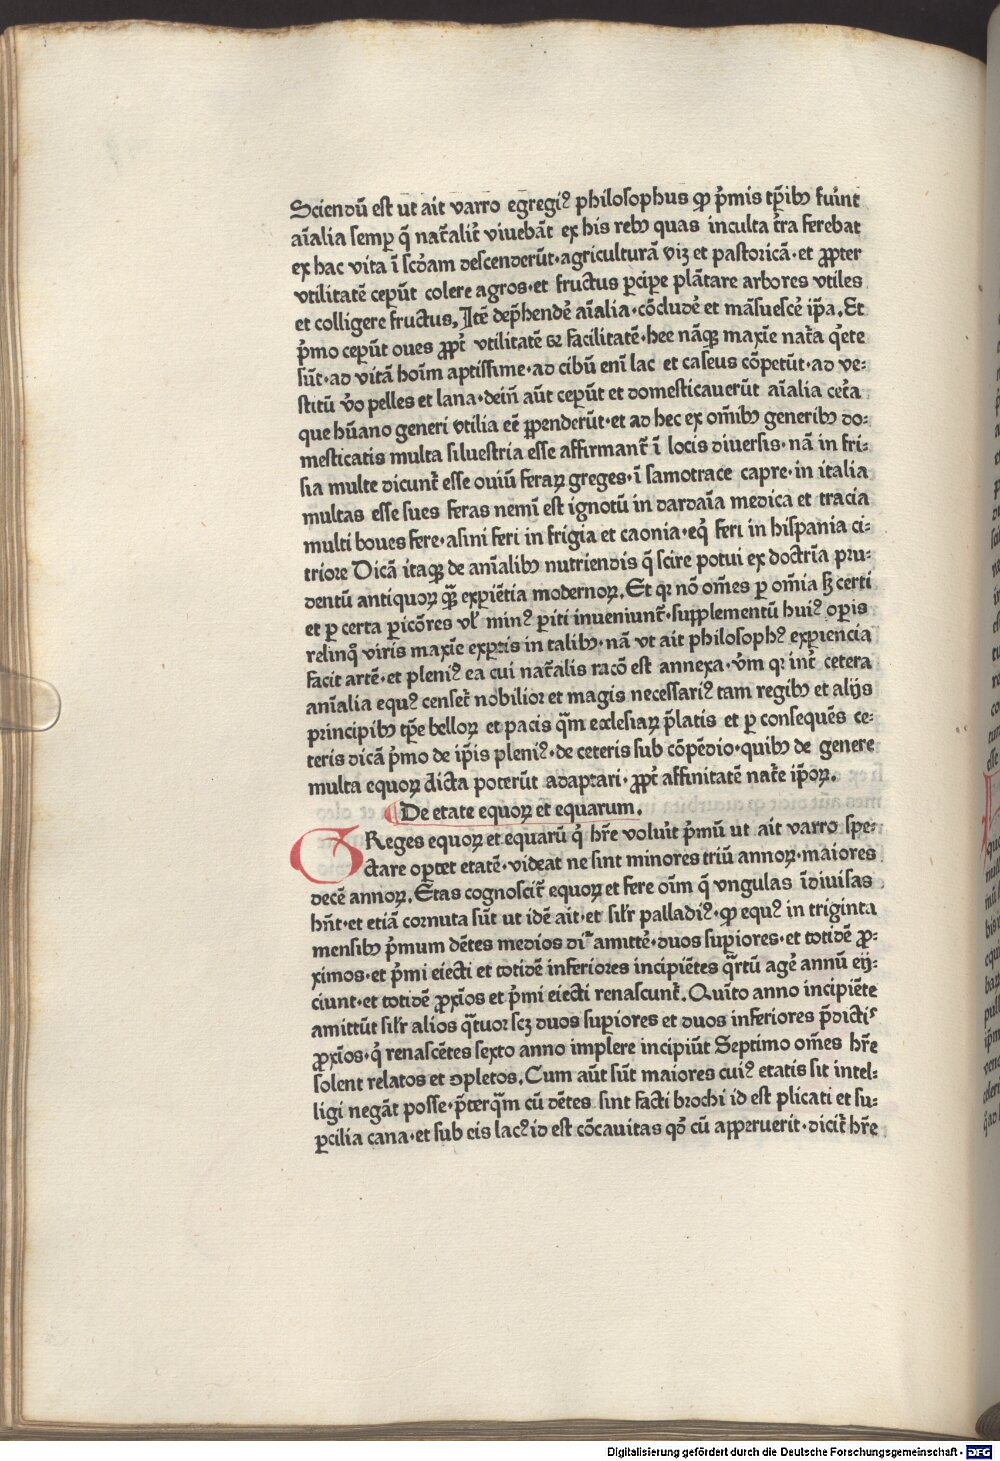 Sciendū est ut ait varro egregiꝰ philosophus ꝙ pͥmis tp̄ibꝫ fuͥnt
aīalia semꝑ q̄ nat̄alit̄ viuebāt ex his rebꝫ quas inculta t̄ra ferebat
ex hac vita ī scdam descenderūt·agriculturā viꝫ et pastoricā·et ꝓpter
vtilitatē ceperūt colere agros·et fructus ꝑcipe plātare arbores vtiles
et colligere fructus. Itē dep̄hendē aīalia·cōcludē et māsuescē ip̄a. Et
pͥmo ceperūt oues ꝓpt̄ vtilitatē & facilitatē·hee nāqꝫ maxīe nat̄a qͥete
sūt·ad vitā hoīm aptissime·ad cibū enī lac et caseus cōpetūt·ad ve:
stitū v̄o pelles et lana·dein̄ aūt ceperūt et domesticauerūt aīalia cet̄a
que hūano generi vtilia eē ꝓpenderūt·et ad hec ex om̄ibꝫ generibꝫ do:
mesticatis multa siluestria esse affirmant̄ ī locis diuersis·nā in fri:
sia multe dicunt̄ esse ouiū feraꝝ greges·ī samotrace capre·in italia
multas esse sues feras nemī est ignotū in dardaīa medica et tracia
multi boues fere·asini feri in frigia et caonia·eqͥ feri in hispania ci:
triore Dicā itaqꝫ de aīalibꝫ nutriendis q̄ scire potui ex doctrīa pru:
dentū antiquoꝝ qꝫ expiētia modernoꝝ. Et qꝛ nō om̄es ꝑ om̄ia sꝫ certi
et ꝑ certa ꝑicōres vl̄ minꝰ ꝑiti inueniunt̄·supplementū huiꝰ oꝑis
relinq̄ viris maxīe expertis in talibꝫ·nā vt ait philosophꝰ expiencia
facit artē·et pleniꝰ ea cui nat̄alis racō est annexa·vm̄ qꝛ int̄ cetera
aīalia equꝰ censet̄ nobilior et magis necessariꝰ tam regibꝫ et alijs
principibꝫ tp̄e belloꝝ et pacis qͣm ecclesiaꝝ p̄latis et ꝑ consequēs ce:
teris dicā pͥmo de ip̄is pleniꝰ·de ceteris sub cōpēdio·quibꝫ de genere
multa equoꝝ dicta poterūt adaptari·ꝓpt̄ affinitatē nat̄e ip̄oꝝ.
De etate equoꝝ et equarum.
GReges equoꝝ et equarū qͥ hr̄e voluīt pͥmū ut ait varro spe:
ctare oportet etatē·videat ne sint minores triū annoꝝ·maiores
decē annoꝝ. Etas cognoscit̄ equoꝝ et fere oīm q̄ vngulas īdiuisas
hn̄t·et etiā cornuta sūt ut idē ait·et sil̄r palladiꝰ·ꝙ equꝰ in triginta
mensibꝫ pͥmum dētes medios di͛ amittē·duos suꝑiores·et totidē ꝓ:
ximos·et pͥmi eiecti et totidē inferiores incipiētes qͣrtū agē annū eij:
ciunt·et totidē ꝓxīos et pͥmi eiecti renascunt̄. Quīto anno incipiēte
amittūt sil̄r alios qͣtuor scꝫ duos suꝑiores et duos inferiores p̄dictiſ
ꝓxīos·qͥ renascētes sexto anno implere incipiūt Septimo om̄es hr̄e
solent relatos et ↄpletos. Cum aūt sūt maiores cuiꝰ etatis sit intel:
ligi negāt posse·p̄terqͣm cū dētes sint facti brochi id est plicati et su:
ꝑcilia cana·et sub eis lacꝰ id est cōcauitas qͦ cū apperuerit·dicit̄ hr̄e
Digitalisierung gefördert durch die Deutsche Forschungsgemeinschaft - DFG